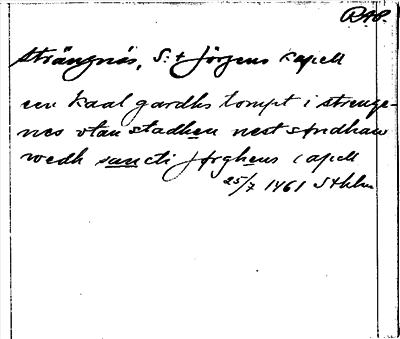 RAp.
Strängnäs, S:t Jörgens kapell
een kaal gardhs tompt i strenge-
nes vtan stadhen nest søndhan
wedh sancti Jørghens capell
25/7 1461 Sthlm